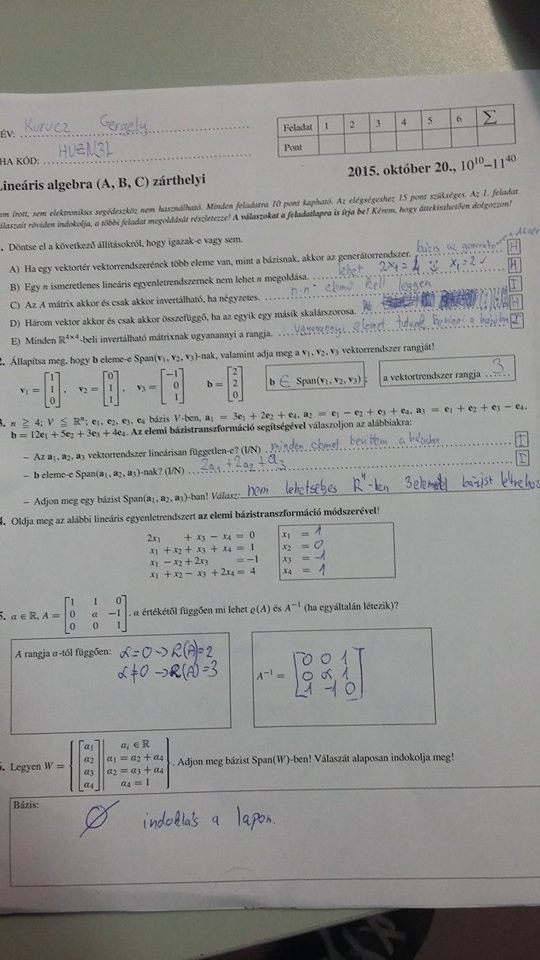 ÉV: Kurucz Gergely
HA KÓD:
Feladat 1 2 3 4 5 6 Σ
Pont
Lineáris algebra (A, B, C) zárthelyi
2015. október 20., 10¹⁰–11⁴⁰
em írott, sem elektronikus segédeszköz nem használható. Minden feladatra 10 pont kapható. Az elégségeshez 15 pont szükséges. Az 1. feladat
álaszait röviden indokolja, a többi feladat megoldását részletezze! A válaszokat a feladatlapra is írja be! Kérem, hogy áttekinthetően dolgozzon!
. Döntse el a következő állításokról, hogy igazak-e vagy sem.
A) Ha egy vektortér vektorrendszerének több eleme van, mint a bázisnak, akkor az generátorrendszer. bázis az generátor H
B) Egy n ismeretlenes lineáris egyenletrendszernek lehet n megoldása. lehet 2x₁=4 x₁=2 H
C) Az A mátrix akkor és csak akkor invertálható, ha négyzetes. n·n elemű kell legyen I
D) Három vektor akkor és csak akkor összefüggő, ha az egyik egy másik skalárszorosa. H
E) Minden ℝ⁴ˣ⁴-beli invertálható mátrixnak ugyanannyi a rangja. ugyanannyi elemet tudunk bevinni a bázisba I
2. Állapítsa meg, hogy b eleme-e Span(v₁, v₂, v₃)-nak, valamint adja meg a v₁, v₂, v₃ vektorrendszer rangját!
v₁ = [1 1 0], v₂ = [0 1 1], v₃ = [−1 0 1] b = [2 2 0] b ∈ Span(v₁, v₂, v₃) a vektortrendszer rangja 3
3. n ≧ 4; V ≦ ℝⁿ; e₁, e₂, e₃, e₄ bázis V-ben, a₁ = 3e₁ + 2e₂ + e₄, a₂ = e₁ − e₂ + e₃ + e₄, a₃ = e₁ + e₂ + e₃ − e₄,
b = 12e₁ + 5e₂ + 3e₃ + 4e₄. Az elemi bázistranszformáció segítségével válaszoljon az alábbiakra:
– Az a₁, a₂, a₃ vektorrendszer lineárisan független-e? (I/N) minden elemet bevittem a bázisba I
– b eleme-e Span(a₁, a₂, a₃)-nak? (I/N) 2a₁+2a₂+a₃ I
– Adjon meg egy bázist Span(a₁, a₂, a₃)-ban! Válasz: nem lehetséges ℝⁿ-ben 3 elemből bázist létreho
4. Oldja meg az alábbi lineáris egyenletrendszert az elemi bázistranszformáció módszerével!
2x₁ + x₃ − x₄ = 0 x₁ = 1
x₁ + x₂ + x₃ + x₄ = 1 x₂ = 0
x₁ − x₂ + 2x₃ = −1 x₃ = −1
x₁ + x₂ − x₃ + 2x₄ = 4 x₄ = 1
5. α ∈ ℝ, A = [1 1 0; 0 α −1; 0 0 1]. α értékétől függően mi lehet ϱ(A) és A⁻¹ (ha egyáltalán létezik)?
A rangja α-tól függően: α=0 → R(A)=2
α≠0 → R(A)=3
A⁻¹ = [0 0 1; 0 α 1; 1 −1 0]
6. Legyen W = {[a₁ a₂ a₃ a₄] | aᵢ ∈ ℝ a₁ = a₂ + a₄ a₂ = a₃ + a₄ a₄ = 1}. Adjon meg bázist Span(W)-ben! Válaszát alaposan indokolja meg!
Bázis:
∅ indoklás a lapon.